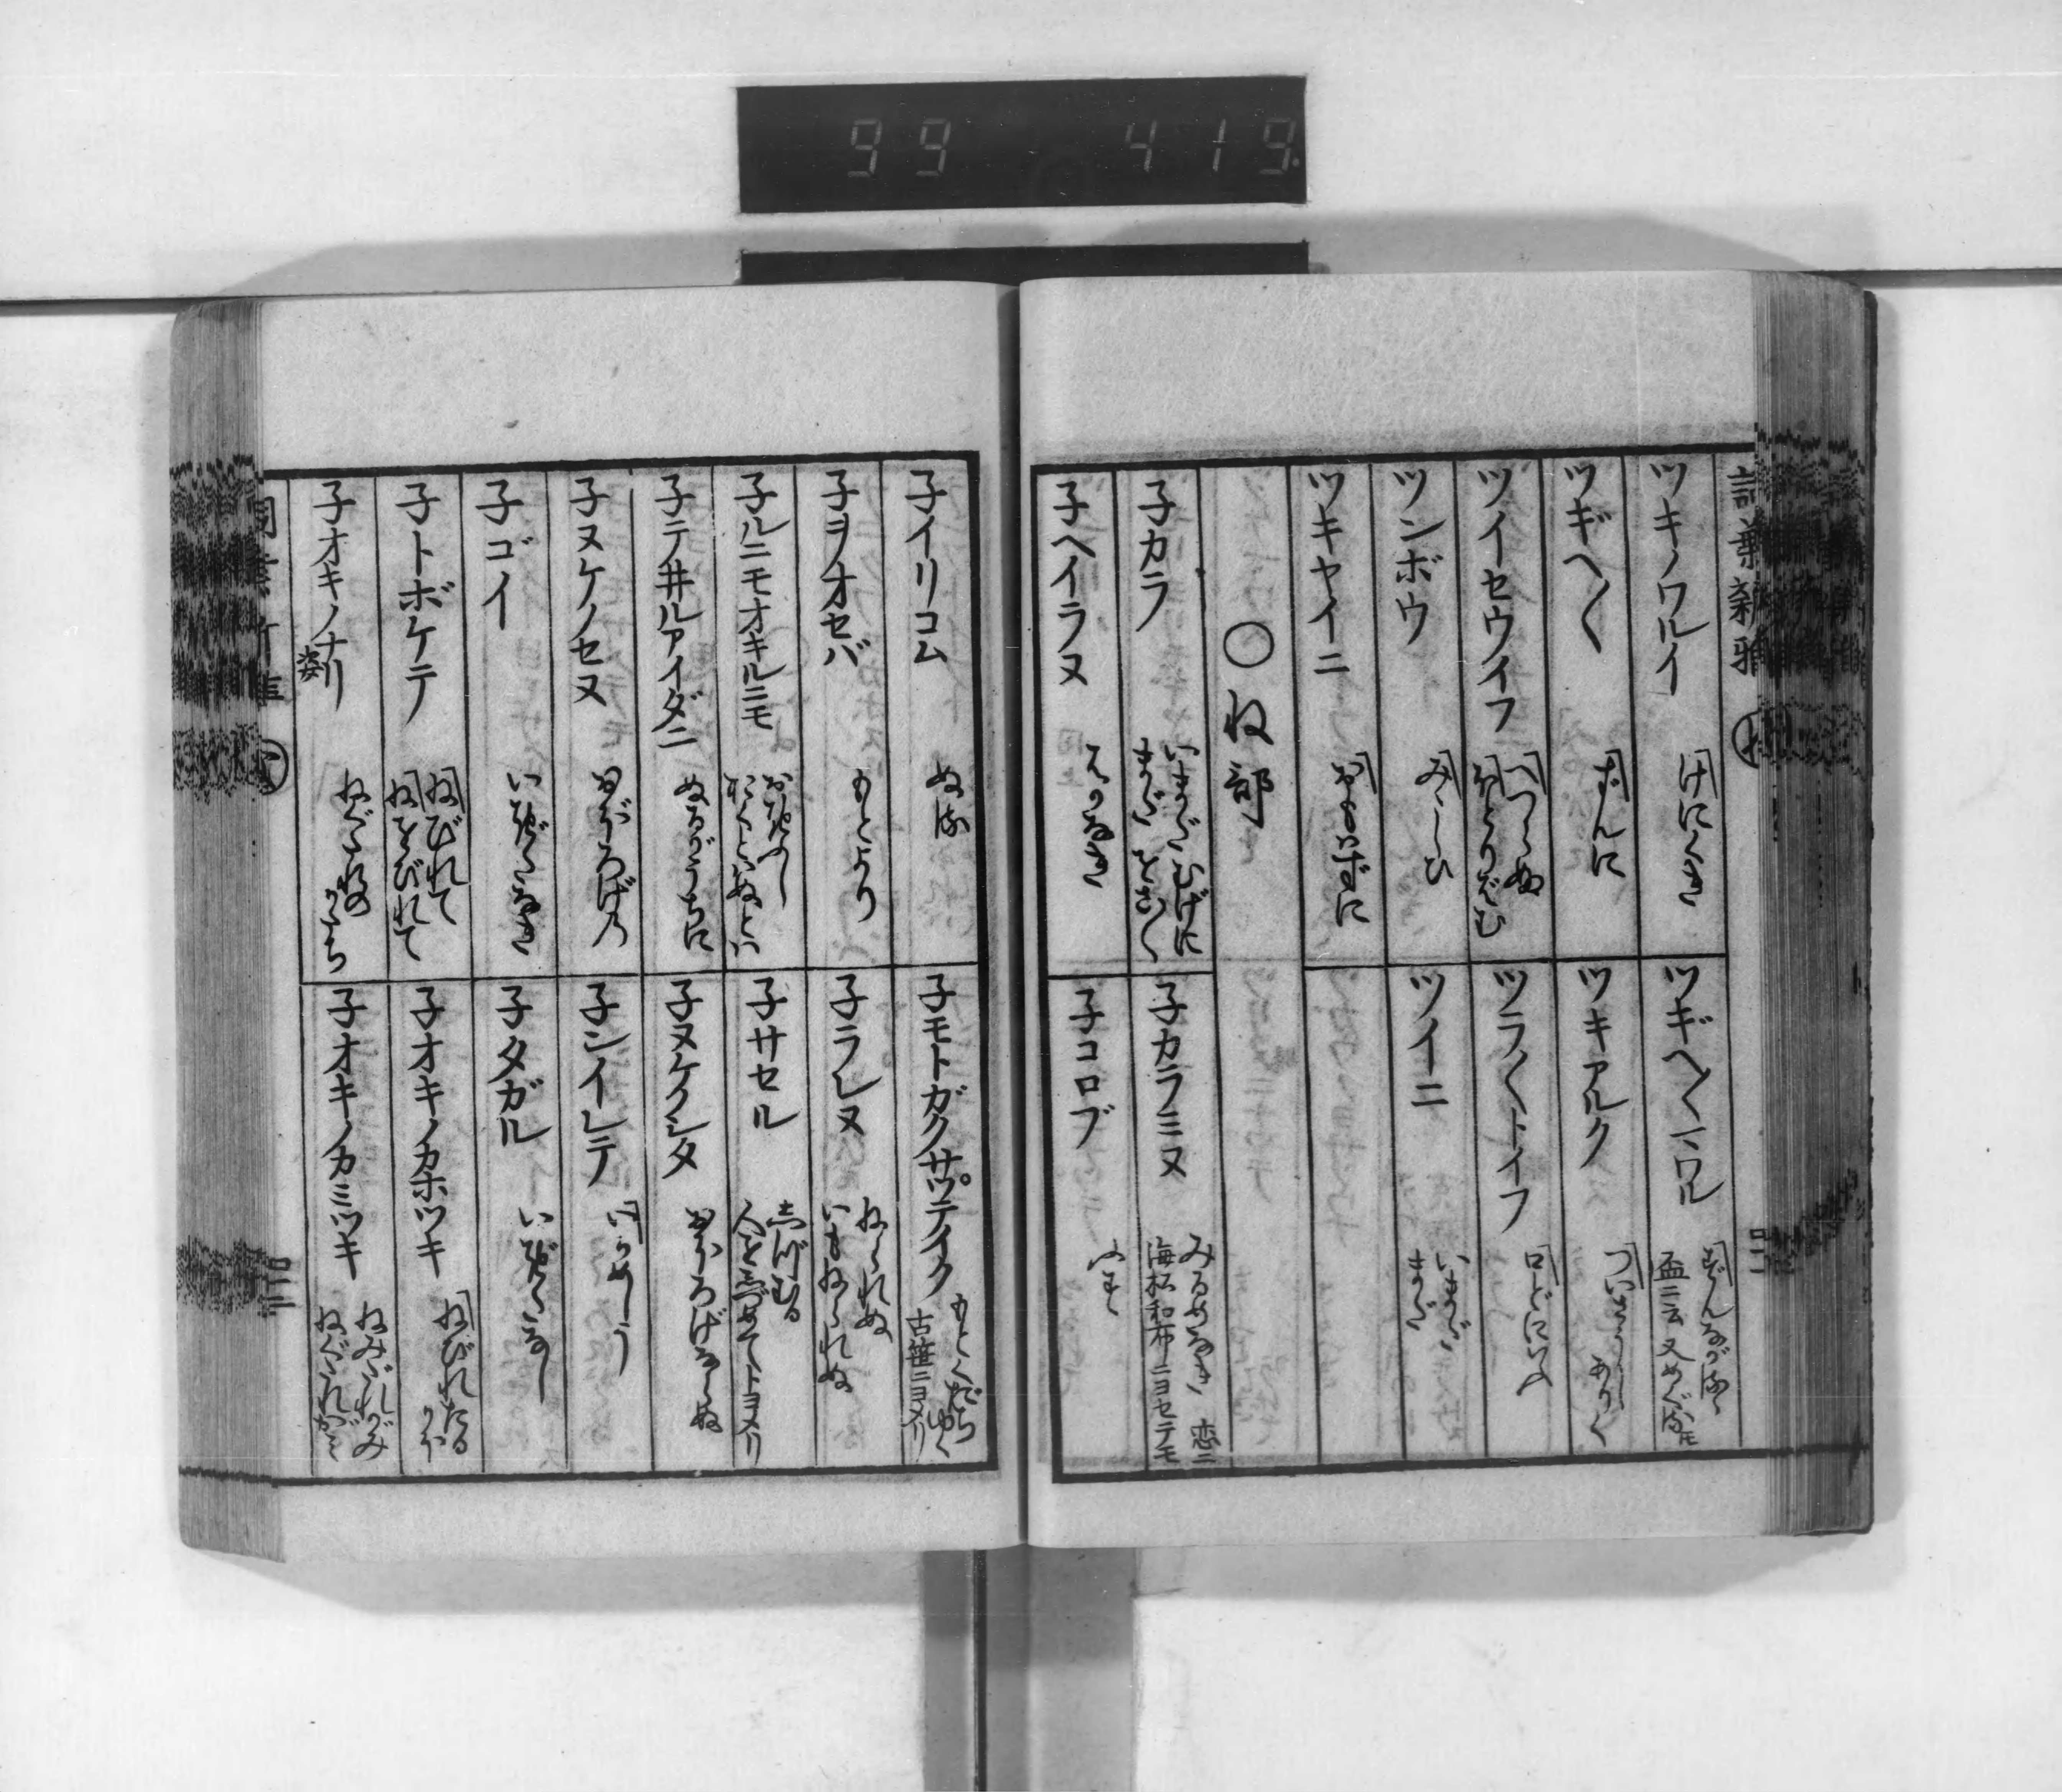 99 419
詞葉新雅
ツキノワルイ
けにくき
ツギヘ〳〵
ずんに
ツイセウイフ
へつらふ
ツンボウ
みゝしひ
ツキヤイニ
〇ね部
子カラ
いまだむげに
まだきこと〳〵
子ヘイラヌ
ツギヘ〳〵ヘワル
盃ニ云又めぐるモ
ツキアルク
ついせうしありく
ツラ〳〵トイフ
口とにいふ
ツイニ
いまだ
まだ
子カラミヌ
みるめなき 恋ニ
海松和布ニヨセテモ
子コロブ
ふす
子イリコム
ぬる
子ヲオセバ
もとより
子ルニモオキルニモ
おきふし
おくといぬとい
子テ井ルアイダニ
ぬるがうちに
子ヌケノセヌ
おぼろげの
子ゴイ
いぎたなき
子トボケテ
ねびれて
ねをびれて
子オキノナリ姿
ねぐたれの
かたち
子モトガクサツテイク
もとくだち
ゆく
古笹ニヨメリ
子ラレヌ
ねられぬ
いもねられぬ
子サセル
しづむる
人をしづめてトヨメリ
子ヌケクシタ
おぼろげならぬ
子ンイレテ
いかめしう
子タガル
いぎたなし
子オキノカホツキ
ねびれたる
かほ
子オキノカミツキ
ねみだれがみ
ねぐたれがみ